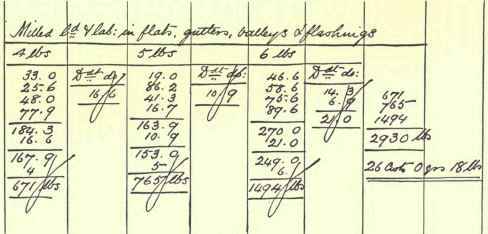 Milled ld & lab: in flats, gutters, valleys & flashings
4 lbs
33.0
25.6
48.0
77.9
184.3
16.6
167.9
4
671 lbs
Ddt do:
16/6
5 lbs
19.0
86.2
41.3
16.7
163.9
10.9
153.0
5
765 lbs
Ddt do:
10/9
6 lbs
46.6
58.6
75.6
89.6
270.0
21.0
249.0
6
1494 lbs
Ddt do:
14.3
6.9
21.0
671
765
1494
2930 lbs
26 cwts 0 qrs 18 lbs